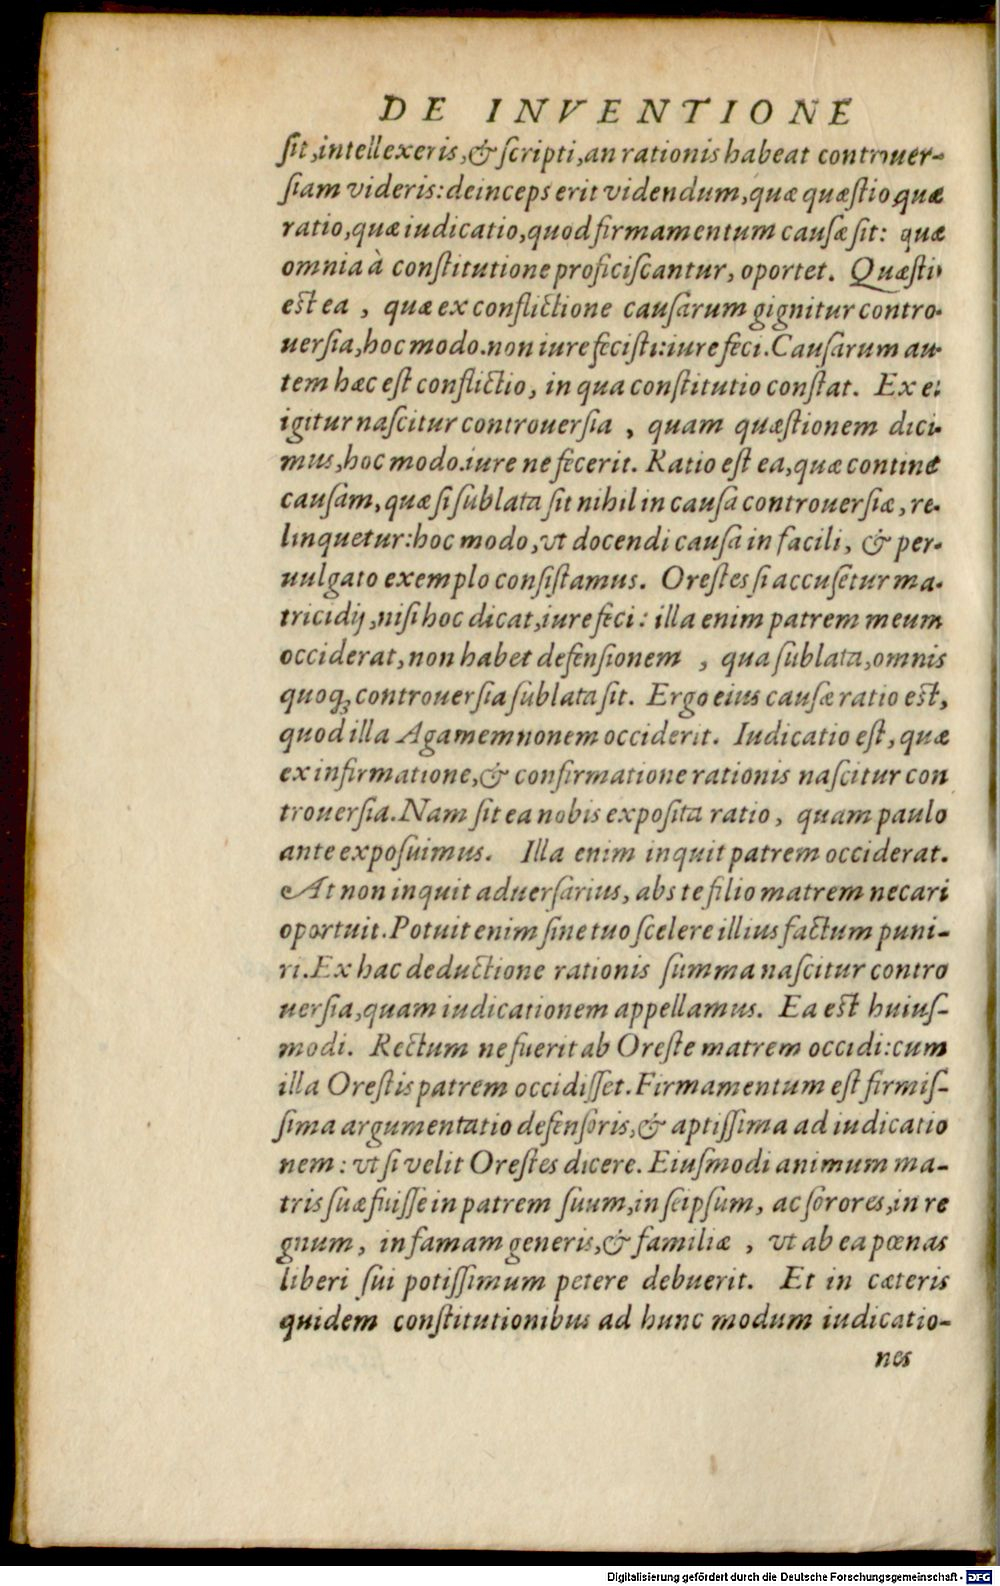 DE INVENTIONE
ſit, intellexeris, & ſcripti, an rationis habeat controuer-
ſiam videris: deinceps erit videndum, quæ quæſtio, quæ
ratio, quæ iudicatio, quod firmamentum cauſæ ſit: quæ
omnia à conſtitutione proficiſcantur, oportet. Quæſti
est ea , quæ ex conflictione cauſarum gignitur contro-
uerſia, hoc modo. non iure feciſti: iure feci. Cauſarum au-
tem hæc eſt conflictio, in qua conſtitutio conſtat. Ex e:
igitur naſcitur controuerſia , quam quæſtionem dici-
mus, hoc modo. iure ne fecerit. Ratio eſt ea, quæ contine
cauſam, quæ ſi ſublata ſit nihil in cauſa controuerſiæ, re-
linquetur: hoc modo, vt docendi cauſa in facili, & per-
uulgato exemplo conſiſtamus. Oreſtes ſi accuſetur ma-
tricidij, niſi hoc dicat, iure feci: illa enim patrem meum
occiderat, non habet defenſionem , qua ſublata, omnis
quoq; controuerſia ſublata ſit. Ergo eius cauſæ ratio est,
quod illa Agamemnonem occiderit. Iudicatio eſt, quæ
ex infirmatione, & confirmatione rationis naſcitur con
trouerſia. Nam ſit ea nobis expoſita ratio, quam paulo
ante expoſuimus. Illa enim inquit patrem occiderat.
At non inquit aduerſarius, abs te filio matrem necari
oportuit. Potuit enim ſine tuo ſcelere illius factum puni-
ri. Ex hac deductione rationis ſumma naſcitur contro
uerſia, quam iudicationem appellamus. Ea est huiuſ-
modi. Rectum ne fuerit ab Oreſte matrem occidi: cum
illa Oreſtis patrem occidiſſet. Firmamentum eſt firmiſ-
ſima argumentatio defenſoris, & aptiſſima ad iudicatio
nem: vt ſi velit Oreſtes dicere. Eiuſmodi animum ma-
tris ſuæ fuiſſe in patrem ſuum, in ſeipſum, ac ſorores, in re
gnum, in famam generis, & familiæ , vt ab ea pœnas
liberi ſui potiſſimum petere debuerit. Et in cæteris
quidem conſtitutionibus ad hunc modum iudicatio-
nes
Digitalisierung gefördert durch die Deutsche Forschungsgemeinschaft - DFG